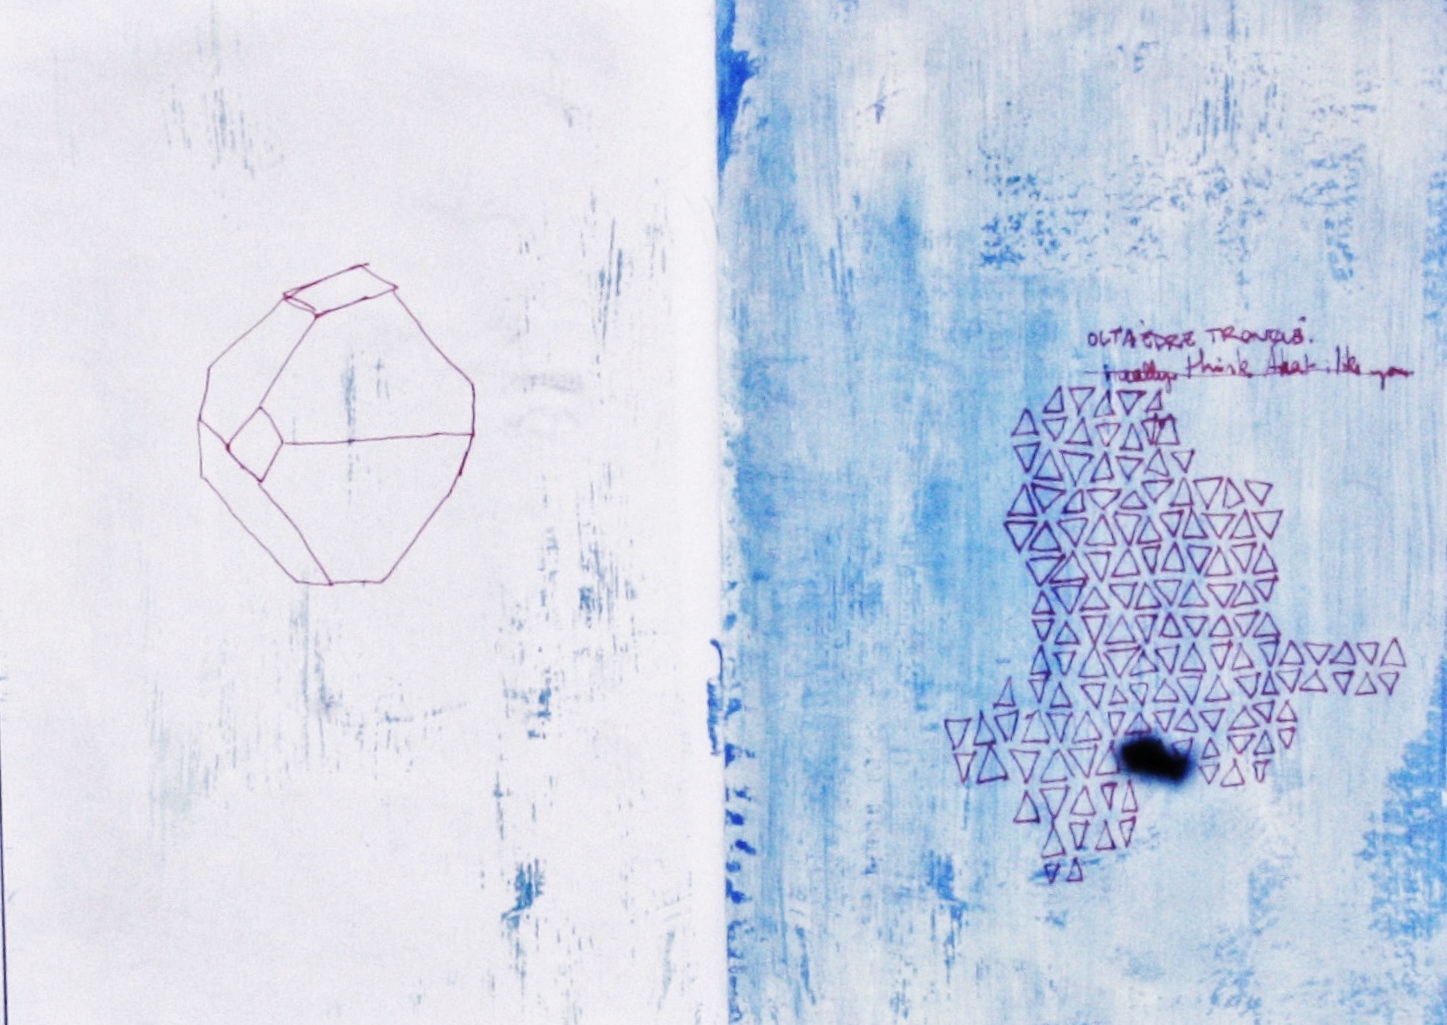 OCTAÈDRE TRONQUÉ.
really think that like you